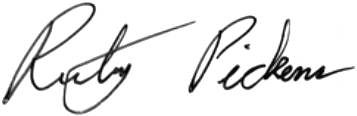 Rusty Pickens